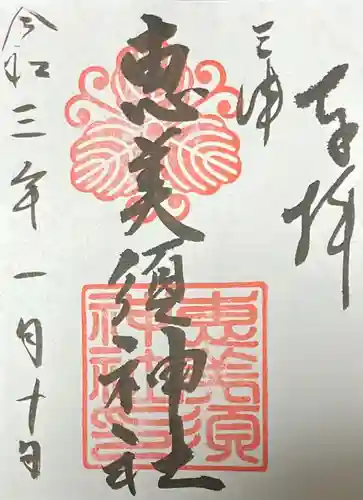 奉拝
三津
恵美須神社
令和三年一月十日
恵美須
神社印